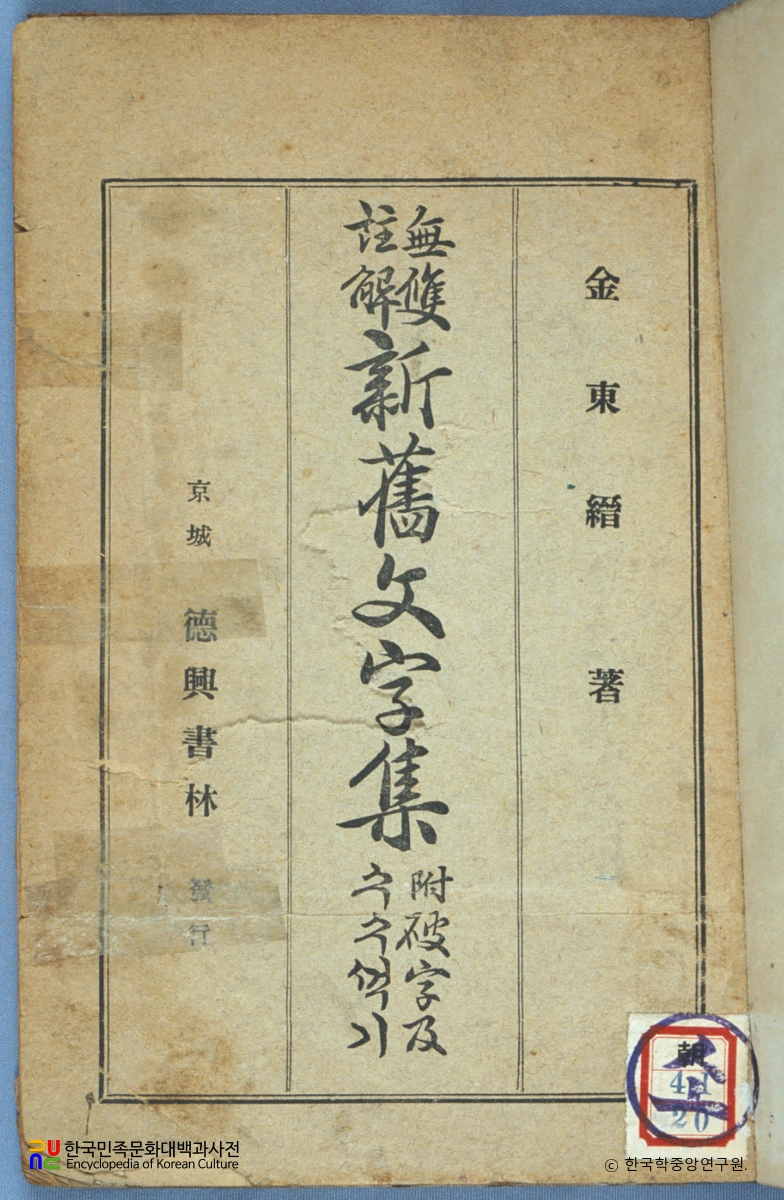 金東縉 著
無雙
註解
新舊文字集
附破字及
수수꺽기
京城 德興書林 發行
朝
41
20
한국민족문화대백과사전
Encyclopedia of Korean Culture
© 한국학중앙연구원.